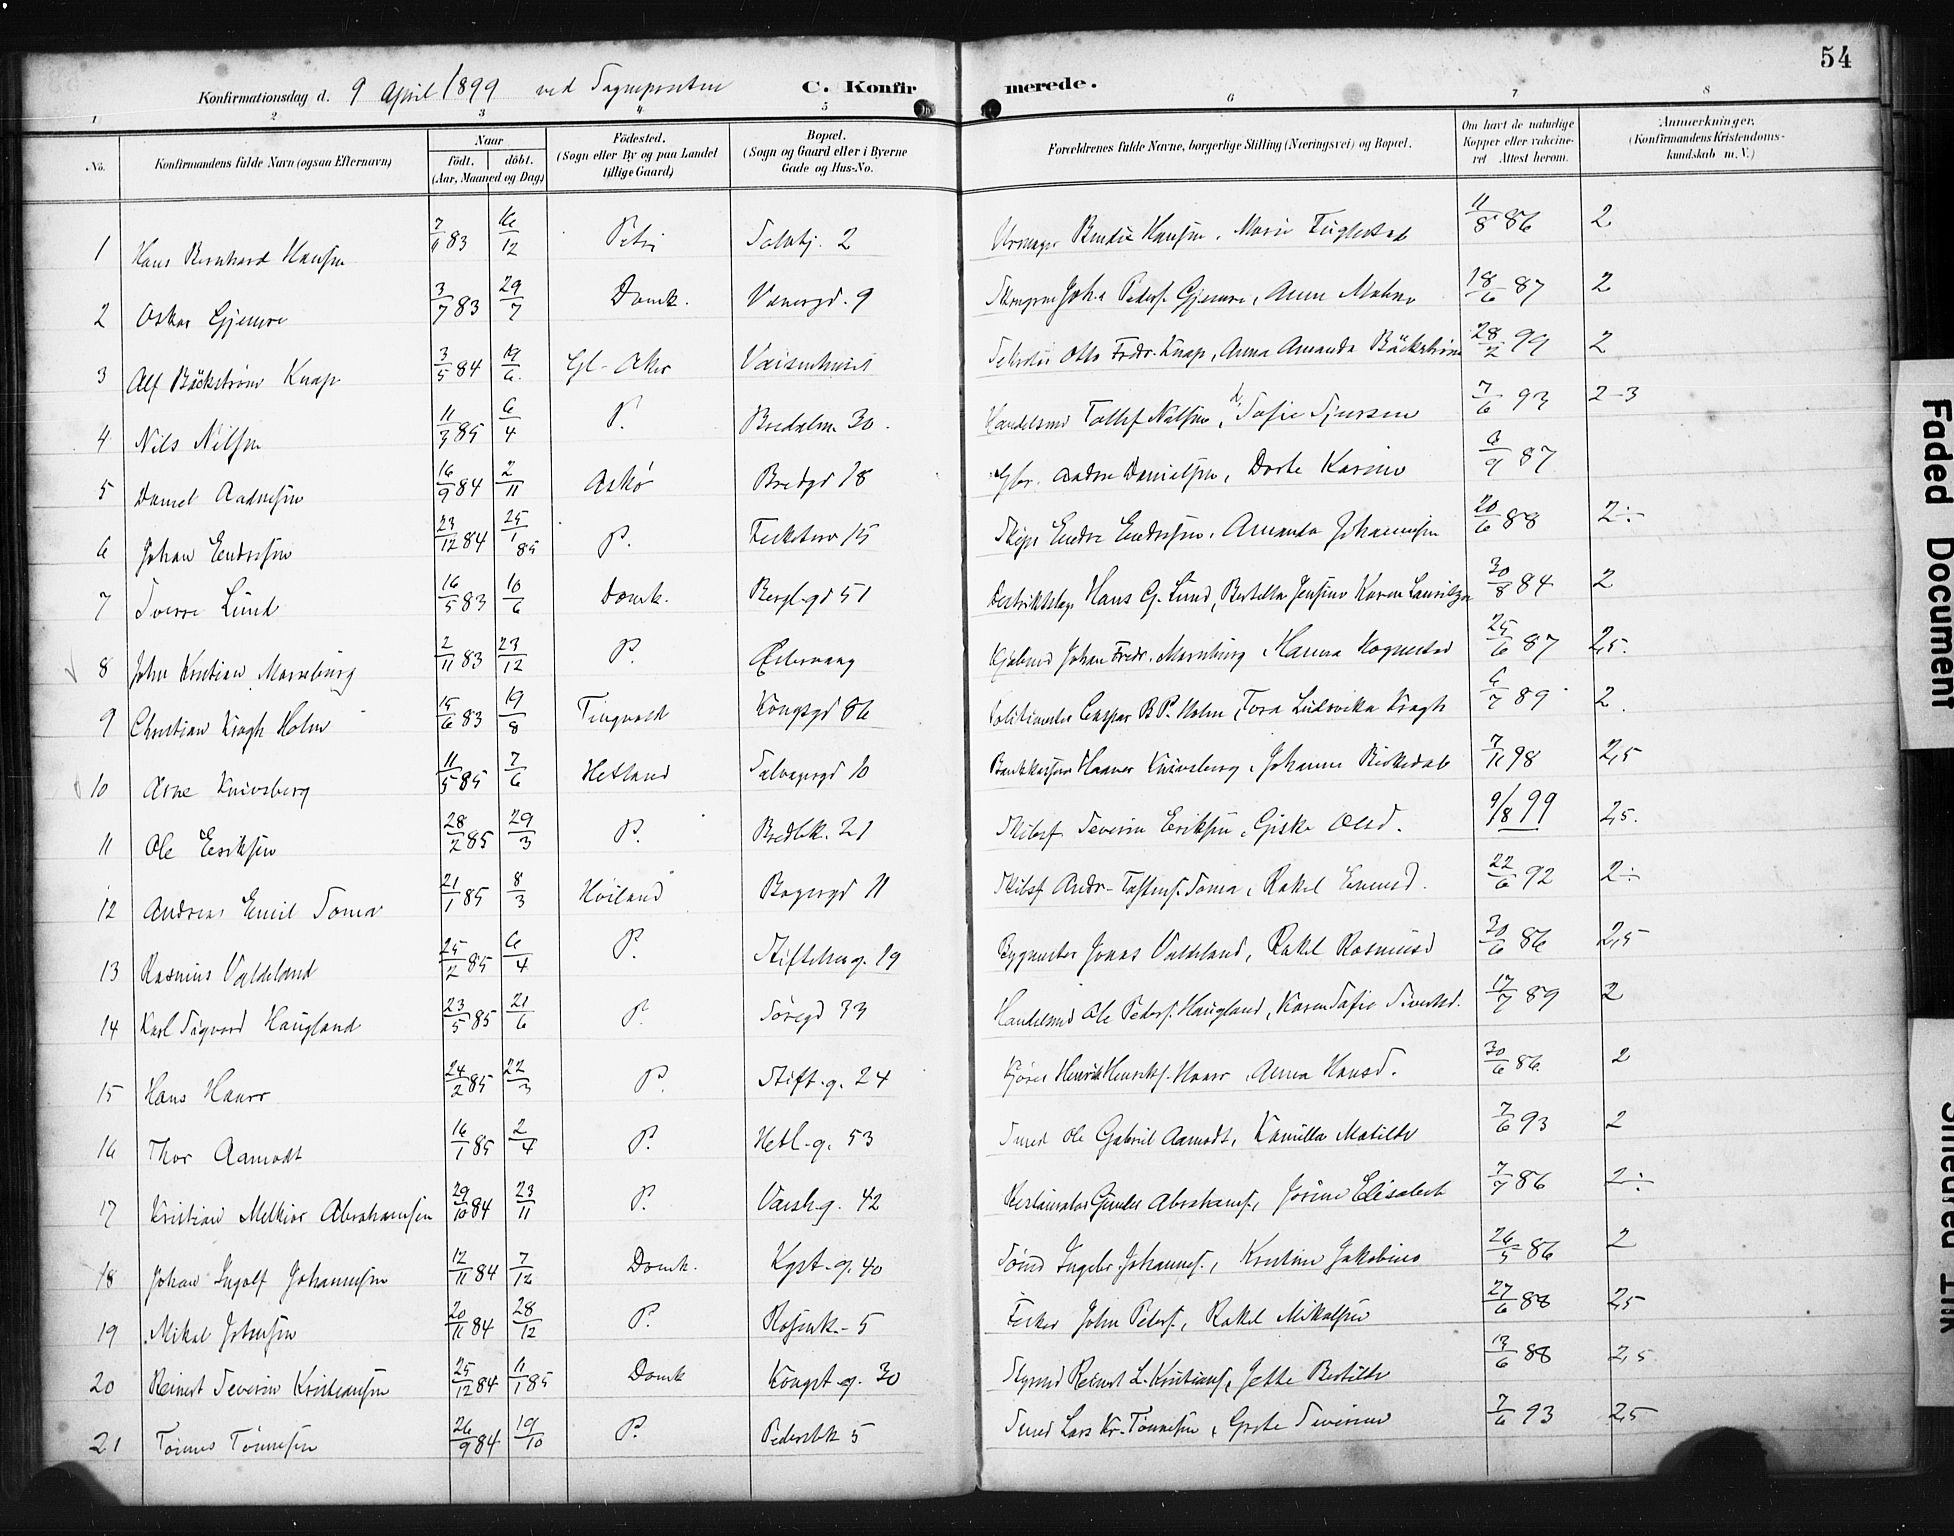 54
Konfirmationsdag d. 9 April 1899 ved Sognepresten C. Konfirmerede.
1 2 3 4 5 6 7 8
No. Konfirmandens fulde Navn (ogsaa Efternavn) Naar født. døbt. (Aar, Maaned og Dag) Fødested. (Sogn eller By og paa Landet tillige Gaard) Bopæl. (Sogn og Gaard eller i Byerne Gade og Hus-No. Forældrenes fulde Navne, borgerlige Stilling (Næringsvei) og Bopæl. Om havt de naturlige Kopper eller vakcineret Attest herom. Anmærkninger. (Konfirmandens Kristendomskundskab m. V.)
1 Hans Bernhard Hansen 7/11 83 16/12 Petri 2 Hansen, Marie Fuglestad 11/8 86 2
2 Oskar Gjemre 3/7 83 29/7 Domk. 9 Joh.s Peders. Gjemre, Anna 18/6 87 2
3 Alf Bäckstrøm Knap 3/5 84 19/6 Gl. Aker Vaisenhuset Otto Fredr. Knap, Anna Amanda Bäckstrøm 28/2 99 2
4 Nils Nilsen 11/3 85 6/4 P. Bredalm. 30 Handelsmd Tollef Nilsen, Sofie 7/6 93 2-3
5 Daniel Aadnesen 16/9 84 2/11 Askø Bredgd 18 Aadne Danielsen, Dorte Karine 6/9 87
6 Johan Endresen 23/12 84 25/1 85 P. 15 Skipr Endre Endresen, Amanda Johannesen 20/6 88 2÷
7 Sverre Lund 16/5 83 10/6 Domk. Bergl.gd 51 Distriktslæge Hans G. Lund, Bertilla Jensine Karen 30/8 84 2
8 John Kristian Marnburg 2/11 83 23/12 P. Østervaag Johan Fredr. Marnburg, Hanna 25/6 87 2,5.
9 Christian Kragh Holm 15/6 83 19/8 Tingvold Kongsgd 86 Politimester Caspar B. P. Holm, Tora Ludovika Kragh 6/7 89 2.
10 Arne Knivsberg 11/5 85 7/6 Hetland Salvagergd 10 Bankkasserer Knivsberg, Johanne Birkedal 7/11 98 2,5
11 Ole Eriksen 28/2 85 29/3 P. Bredbk. 21 Severin Eriksen, Giske Olsd. 9/8 99 2,5.
12 Andreas Emil Soma 21/1 85 8/3 Høiland Bagergd 11 Andr. Soma, Rakel 22/6 92 2÷
13 Rasmus Valdeland 25/2 85 6/4 P. 19 Bygmester Jonas Valdeland, Rakel Rasmusd 30/6 86 2,5
14 Karl Sigvard Haugland 23/5 85 21/6 P. Søregd 33 Handelsmd Ole Peders. Haugland, Karen Sofie 17/7 89 2
15 Hans Haarr 24/2 85 22/3 P. Stift.g. 24 Kjører Henrik Henriks. Haarr, Anna Hansd. 30/6 86 2
16 Thor Aamodt 16/1 85 2/4 P. Hetl.g. 53 Smed Ole Gabriel Aamodt, Kamilla Matilde 7/6 93 2
17 Kristian Melkior Abrahamsen 29/10 84 23/11 P. 42 Restauratør Gunder Abrahams., Jorine Elisabeth 7/7 86 2÷
18 Johan Ingolf Johannesen 12/11 84 7/12 Domk. Kgst.g. 40 Johannes., Kristine Jakobine 26/5 86 2
19 Mikal Johnsen 20/11 84 28/12 P. Rosenk. 5 John Peders., Rakel Mikalsen 27/6 88 2,5
20 Reinert Severin Kristiansen 25/12 84 11/1 85 Domk Kongst.g. 30 Styrmd Reinert L. Kristians., Jette Bertille 13/6 88 2,5
21 Tønnes Tønnesen 26/9 84 19/10 P. Pedersbk 5 Smed Lars Kr. Tønnesen, Grete Severine 7/6 93 2,5
Faded Document
Smeared Ink